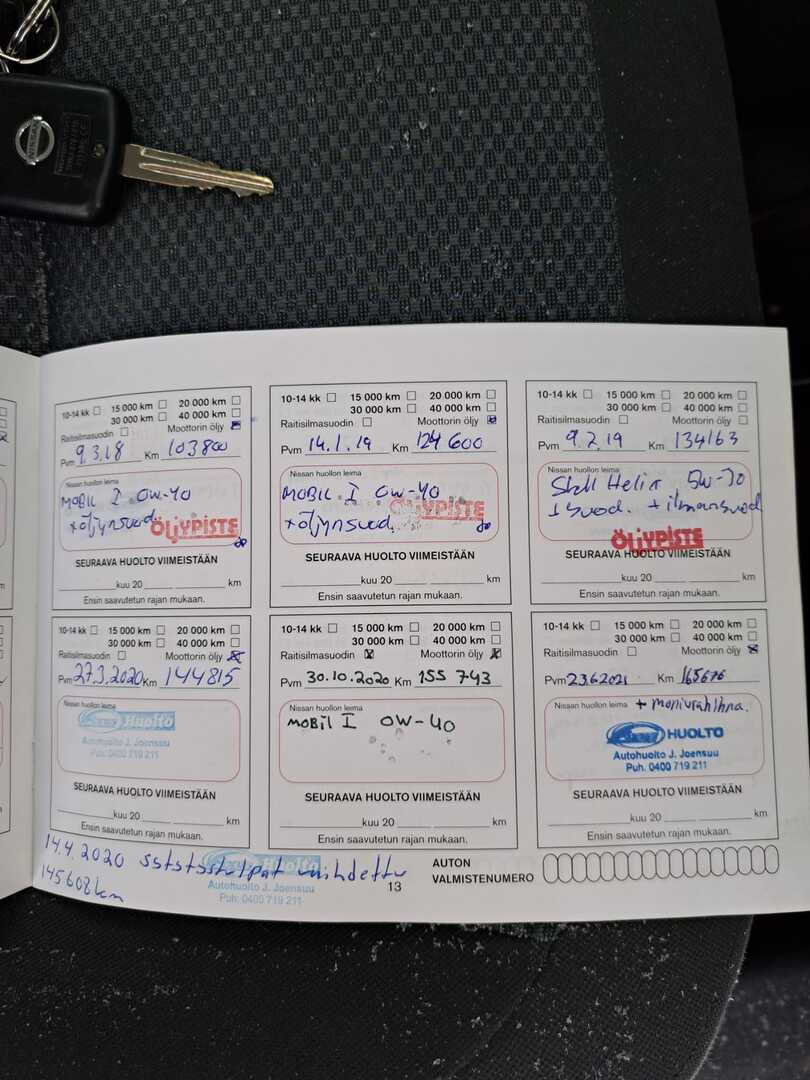 NISSAN
10-14 kk 15 000 km 20 000 km
30 000 km 40 000 km
Raitisilmasuodin Moottorin öljy
Pvm 9.3.18 Km 103800
Nissan huollon leima
MOBIL I 0W-40
+öljynsuod.
ÖLJYPISTE
SEURAAVA HUOLTO VIIMEISTÄÄN
kuu 20 km
Ensin saavutetun rajan mukaan.
10-14 kk 15 000 km 20 000 km
30 000 km 40 000 km
Raitisilmasuodin Moottorin öljy
Pvm 14.1.19 Km 124 600
Nissan huollon leima
MOBIL I 0W-40
+öljynsuod.
ÖLJYPISTE
SEURAAVA HUOLTO VIIMEISTÄÄN
kuu 20 km
Ensin saavutetun rajan mukaan.
10-14 kk 15 000 km 20 000 km
30 000 km 40 000 km
Raitisilmasuodin Moottorin öljy
Pvm Km 134163
Nissan huollon leima
Shell Helix
+ ilmansuod
ÖLJYPISTE
SEURAAVA HUOLTO VIIMEISTÄÄN
kuu 20 km
Ensin saavutetun rajan mukaan.
10-14 kk 15 000 km 20 000 km
30 000 km 40 000 km
Raitisilmasuodin Moottorin öljy
Pvm 27.3.2020 Km 144815
Nissan huollon leima
Huolto
Autohuolto J. Joensuu
Puh. 0400 719 211
SEURAAVA HUOLTO VIIMEISTÄÄN
kuu 20 km
Ensin saavutetun rajan mukaan.
10-14 kk 15 000 km 20 000 km
30 000 km 40 000 km
Raitisilmasuodin Moottorin öljy
Pvm 30.10.2020 Km 155 743
Nissan huollon leima
MOBIL I 0W-40
SEURAAVA HUOLTO VIIMEISTÄÄN
kuu 20 km
Ensin saavutetun rajan mukaan.
10-14 kk 15 000 km 20 000 km
30 000 km 40 000 km
Raitisilmasuodin Moottorin öljy
Pvm 23.6.2021 Km 165676
Nissan huollon leima + moniurahihna.
HUOLTO
Autohuolto J. Joensuu
Puh. 0400 719 211
SEURAAVA HUOLTO VIIMEISTÄÄN
kuu 20 km
Ensin saavutetun rajan mukaan.
14.4.2020 vaihdettu
145608km
Huolto
Autohuolto J. Joensuu
Puh. 0400 719 211
13
AUTON
VALMISTENUMERO